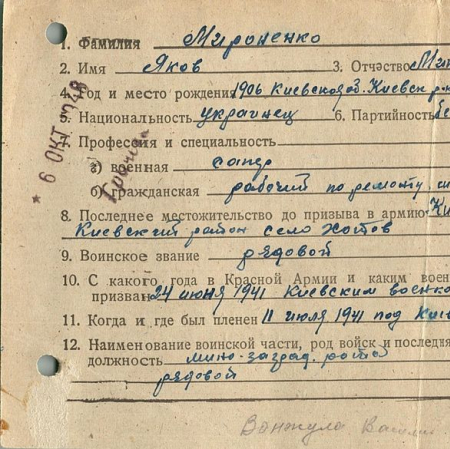 1. Фамилия Мироненко
2. Имя Яков 3. Отчество
4. Год и место рождения 1906 Киевская
5. Национальность украинец 6. Партийность
7. Профессия и специальность
а) военная сапер
б) гражданская рабочий по ремонту
8. Последнее местожительство до призыва в армию
Киевский район село Хотов
9. Воинское звание рядовой
10. С какого года в Красной Армии и каким воен
призван 24 июня 1941 Киевским военко
11. Когда и где был пленен 11 июля 1941 под
12. Наименование воинской части, род войск и последня
должность мино-заград. рота
рядовой
* 6 ОКТ